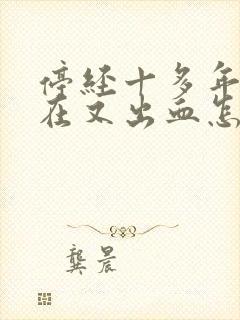 停经十多年
在又出血怎
龚晨